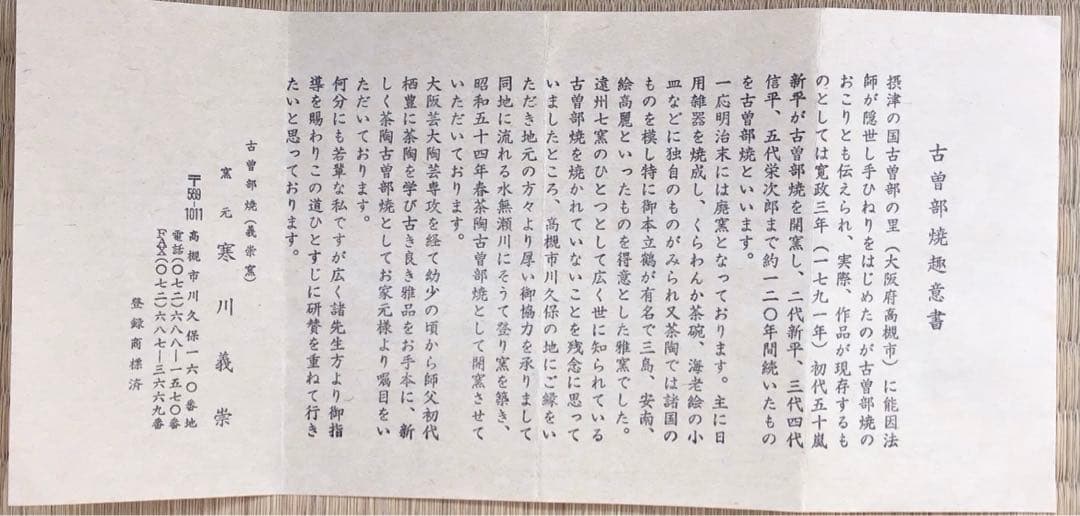 古曽部焼趣意書
摂津の国古曽部の里（大阪府高槻市）に能因法
師が隠世し手ひねりをはじめたのが古曽部焼の
おこりとも伝えられ、実際、作品が現存するも
のとしては寛政三年（一七九一年）初代五十嵐
新平が古曽部焼を開窯し、二代新平、三代四代
信平、五代栄次郎まで約一二〇年間続いたもの
を古曽部焼といいます。
一応明治末には廃窯となっております。主に日
用雑器を焼成し、くらわんか茶碗、海老絵の小
皿などに独自のものがみられ又茶陶では諸国の
ものを模し特に御本立鶴が有名で三島、安南、
絵高麗といったものを得意とした雅窯でした。
遠州七窯のひとつとして広く世に知られている
古曽部焼を焼かれていないことを残念に思って
いましたところ、高槻市川久保の地にご縁をい
ただき地元の方々より厚い御協力を承りまして
同地に流れる水無瀬川にそうて登り窯を築き、
昭和五十四年春茶陶古曽部焼として開窯させて
いただいております。
大阪芸大陶芸専攻を経て幼少の頃から師父初代
栖豊に茶陶を学び古き良き雅品をお手本に、新
しく茶陶古曽部焼としてお家元様より嘱目をい
ただいております。
何分にも若輩な私ですが広く諸先生方より御指
導を賜わりこの道ひとすじに研賛を重ねて行き
たいと思っております。
古曽部焼（義崇窯）
窯元 寒川義崇
〒569-1011 高槻市川久保一六〇番地
電話（〇七二）六八八ー一五七〇番
FAX（〇七二）六八七ー三六六九番
登録商標済